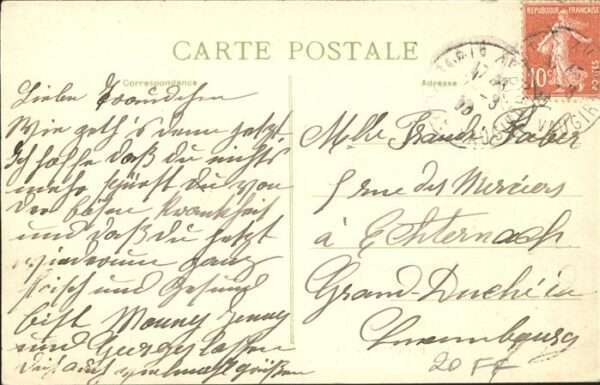 CARTE POSTALE
Correspondance
Adresse
REPUBLIQUE FRANÇAISE
10c
POSTES
Liebe
Wie geht's denn jetzt
Ich hoffe daß du nichts
mehr spürst du von
der bösen Krankheit
und daß du jetzt
wiederum ganz
frisch und gesund
bist Mouny Jenny
und Georges lassen
dich auch vielmahl grüßen
Melle Faber
5 rue des Merciers
à Echternach
Grand-Duché de
Luxembourg
20 FF